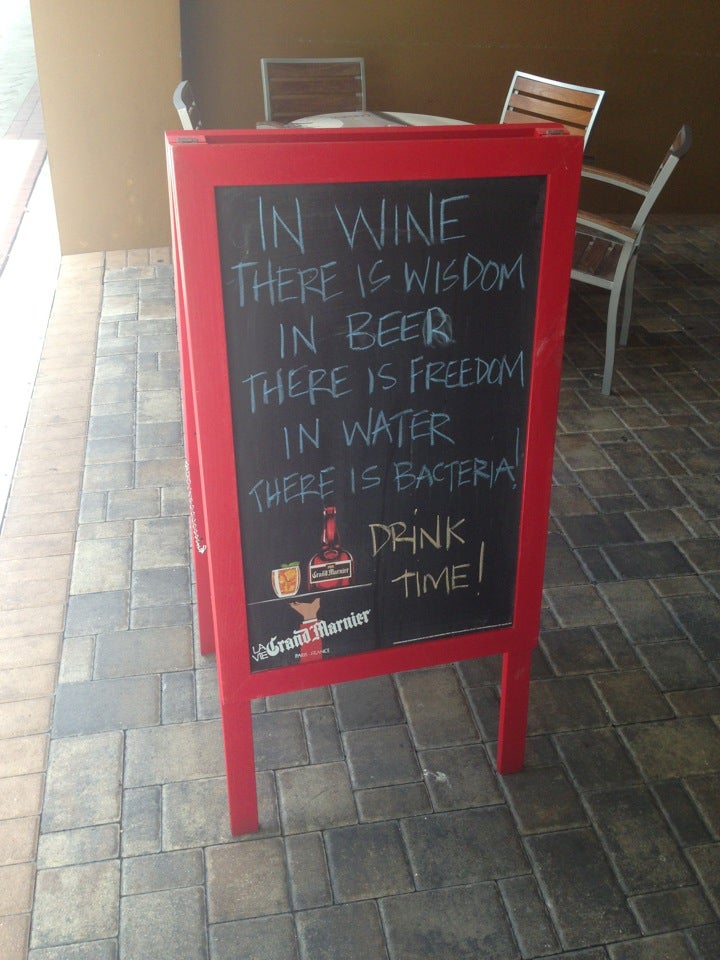 IN WINE
THERE IS WISDOM
IN BEER
THERE IS FREEDOM
IN WATER
THERE IS BACTERIA!
DRINK
TIME!
Grand Marnier
LA VIE Grand Marnier
PARIS, FRANCE